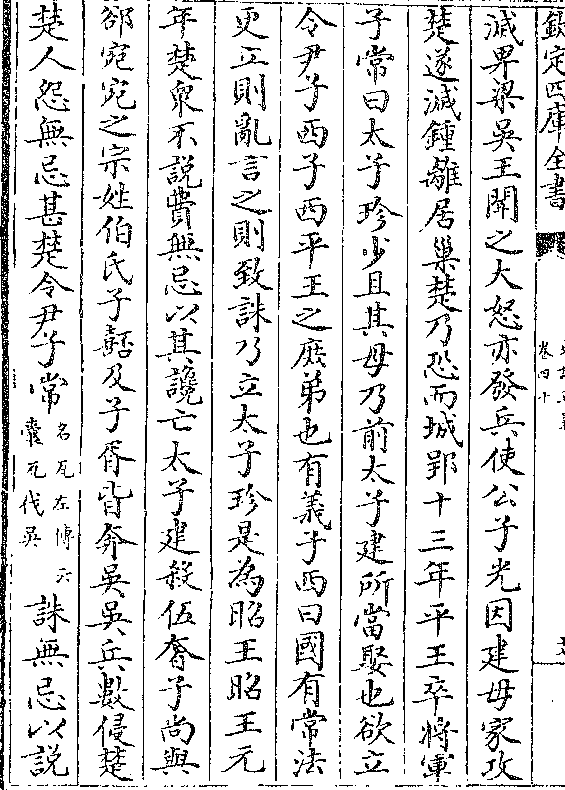 欽定四庫全書
卷四十
滅卑梁吳王聞之大怒亦發兵使公子光因建母家攻
楚遂滅鍾離居巢楚乃恐而城郢十三年平王卒將軍
子常曰太子珍少且其母乃前太子建所當娶也欲立
令尹子西子西平王之庶弟也有義子西曰國有常法
更立則亂言之則致誅乃立太子珍是為昭王昭王元
年楚衆不說費無忌以其讒亡太子建殺伍奢子尚與
郤宛宛之宗姓伯氏子嚭及子胥皆奔吳吳兵數侵楚
楚人怨無忌甚楚令尹子常名瓦左傳云囊瓦伐吳誅無忌以説